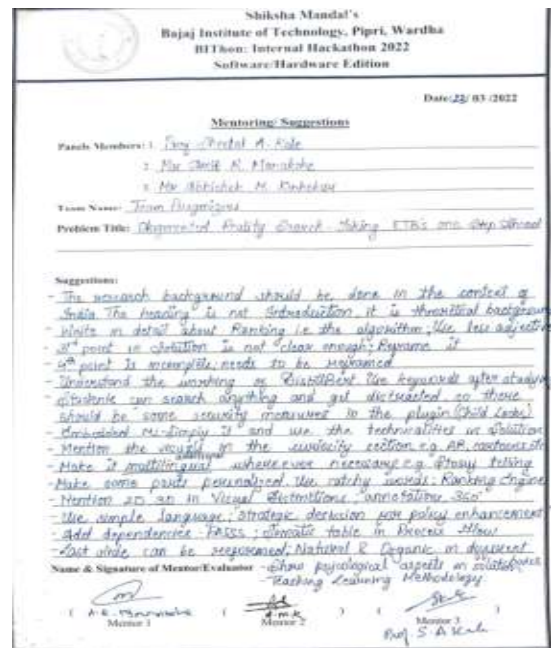 Shiksha Mandal's
Bajaj Institute of Technology, Pipri, Wardha
BIThon: Internal Hackathon 2022
Software/Hardware Edition
Date:22/ 03 /2022
Mentoring/ Suggestions
Panels Members: 1. Prof. Sheetal A. Kale
2. Mr. Amit R.
3. Mr. Abhishek M.
Team Name: Team
Problem Title: Augmented Reality Search - Taking ETB's one Step Ahead
Suggestions:
- The research background should be done in the context of
India The heading is not Introduction, it is theoritical background
- Write in detail about Ranking i.e the algorithm; Use less adjective
- 3rd point in Solution is not clear enough; Reframe it
- 4th point is incomplete; needs to be reframed
- Understand the working of DistilBert Use keywords after studying
- Students can search anything and get distracted so there
should be some security measures in the plugin (Child Locks)
- Embedded it and use the technicalities in Solution
- Mention the visuals in the curiosity section e.g AR, cartoons etc
- Make it multilingual wherever necessary e.g Story telling
- Make some parts personalized. Use catchy words: Ranking Engine
- Mention 2D 3D in Visual annotations 360°
- Use simple language; Strategic decision for policy enhancement
- Add dependencies: table in Process Flow
- Last slide can be Natural & Organic in document
Name & Signature of Mentor/Evaluator - Show psycological aspects in solution
Teaching Learning Methodology
( ) ( ) ( )
Mentor 1 Mentor 2 Mentor 3
Prof. S. A. Kale